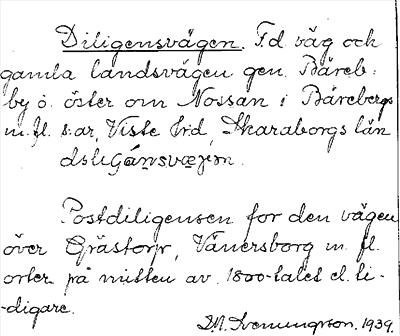 Diligensvägen. F.d. väg och
gamla landsvägen gen. Båreb:
by ö. öster om Nossan i Bårebergs
m.fl. s:ar, Viste hrd, Skaraborgs län
Postdiligensen for den vägen
över Grästorp, Vänersborg m. fl.
orter på mitten av 1800-talet el. ti-
-digare.
D.M. Svenungsson. 1939.